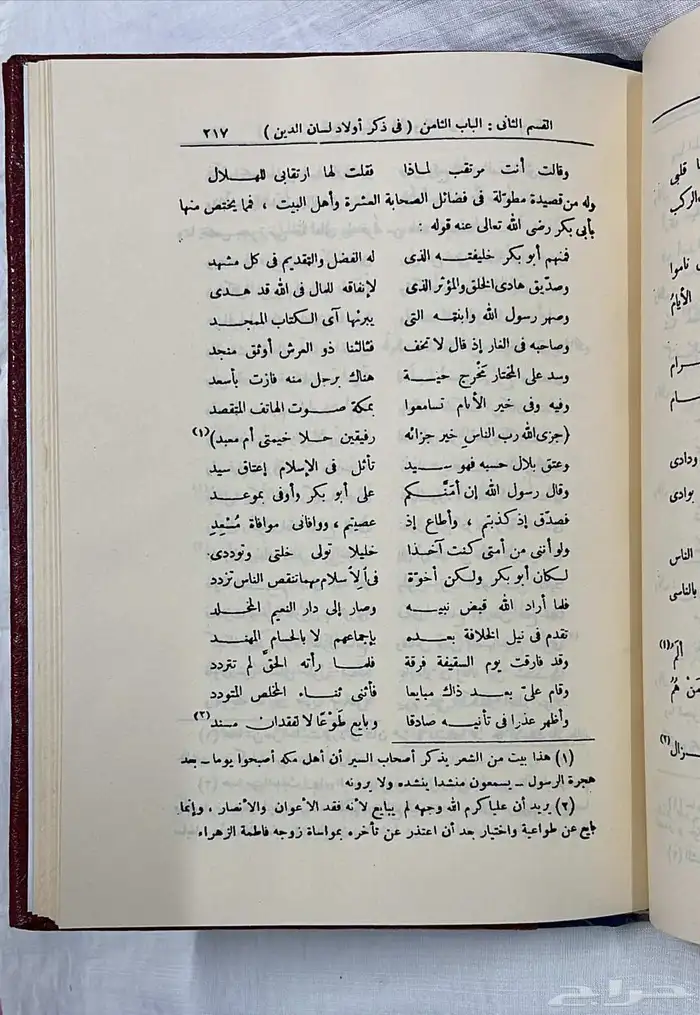 القسم الثانى : الباب الثامن ( فى ذكر أولاد لسان الدين ) ٢١٧
وقالت أنت مرتقب لماذا فقلت لها ارتقابى للهلال
وله من قصيدة مطوّلة فى فضائل الصحابة العشرة وأهل البيت ، فما يختص منها
بأبى بكر رضى الله تعالى عنه قوله :
فمنهم أبو بكر خليفته الذى له الفضل والتقديم فى كل مشهد
وصدّيق هادى الخلق والمؤثر الذى لإنفاقه للمال فى الله قد هدى
وصهر رسول الله وابنته التى يبرئها آى الكتاب الممجد
وصاحبه فى الغار إذ قال لا تخف فثالثنا ذو العرش أوثق منجد
وسد على المختار مَخْرج حية هناك برجل منه فازت بأسعد
وفيه وفى خير الأنام تسامعوا بمكة صوت الهاتف المتقصد
(جزى الله رب الناس خير جزائه رفيقين حلا خيمتى أم معبد)(١)
وعتق بلال حسبه فهو سيد تأثل فى الإسلام إعتاق سيد
وقال رسول الله إن أمَنَّكم على أبو بكر وأوفى بموعد
فصدّق إذ كذبتم ، وأطاع إذ عصيتم ، ووافانى موافاة مُسْعِدِ
ولو أننى من أمتى كنت آخذا خليلا تولى خلتى وتوددى
لكان أبو بكر ولكن أخوّة فى الإسلام مهما تنقص الناس تزدد
فلما أراد الله قبض نبيه وصار إلى دار النعيم المخلد
تقدم فى نيل الخلافة بعده بإجماعهم لا بالحسام المهند
وقد فارقت يوم السقيفة فرقة فلما رأته الحقَّ لم تتردد
وقام علىّ بعد ذاك مبايعا فأثنى ثناء المخلص المتودد
وأظهر عذرا فى تأنيه صادقا وبايع طَوْعًا لا لفقدان مسند(٢)
(١) هذا بيت من الشعر يذكر أصحاب السير أن أهل مكة أصبحوا يوما ــ بعد
هجرة الرسول ــ يسمعون منشدا ينشده ولا يرونه
(٢) يريد أن عليا كرم الله وجهه لم يبايع لأنه فقد الأعوان والأنصار ، وإنما
بايع عن طواعية واختيار بعد أن اعتذر عن تأخره بمواساة زوجه فاطمة الزهراء
قلبى
الركب
ناموا
الأيامُ
ودادى
بوادى
الناس
بالناسى
حراج